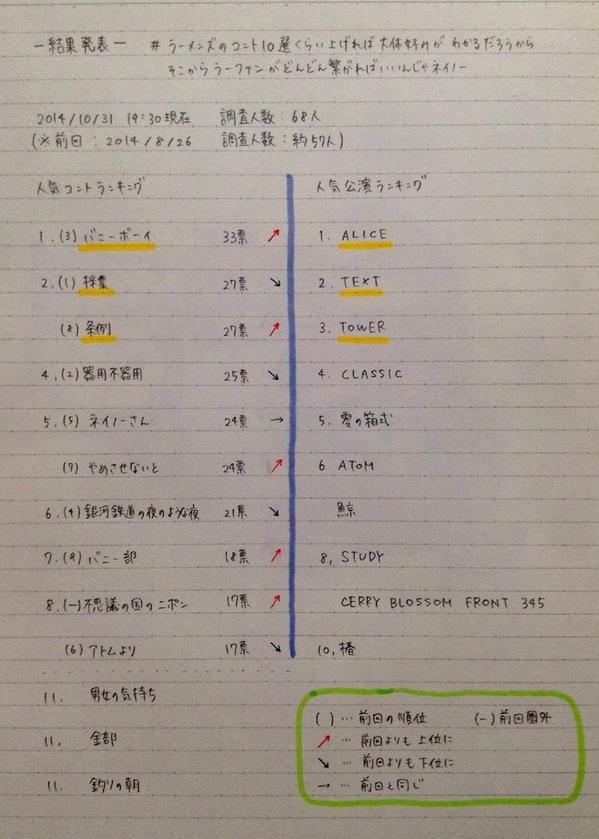 ー結果発表ー ＃ラーメンズのコント10選くらい上げれば大体好みがわかるだろうから
そこからラーファンがどんどん繋がればいいんじゃネイノー
2014/10/31 19:30現在 調査人数:68人
(※前回:2014/8/26 調査人数:約57人)
人気コントランキング
1.(3)バニーボーイ 33票 ↗
2.(1)採集 27票 ↘
(8)条例 27票 ↗
4.(2)器用不器用 25票 ↘
5.(5)ネイノーさん 24票 →
(7)やめさせないと 24票 ↗
6.(4)銀河鉄道の夜のような夜 21票 ↘
7.(9)バニー部 18票 ↗
8.(ー)不思議の国のニポン 17票 ↗
(6)アトムより 17票 ↘
11. 男女の気持ち
11. 金部
11. 釣りの朝
人気公演ランキング
1. ALICE
2. TEXT
3. TOWER
4. CLASSIC
5. 零の箱式
6. ATOM
鯨
8, STUDY
CERRY BLOSSOM FRONT 345
10, 椿
( ) … 前回の順位 (ー)前回圏外
↗ … 前回よりも上位に
↘ … 前回よりも下位に
→ … 前回と同じ